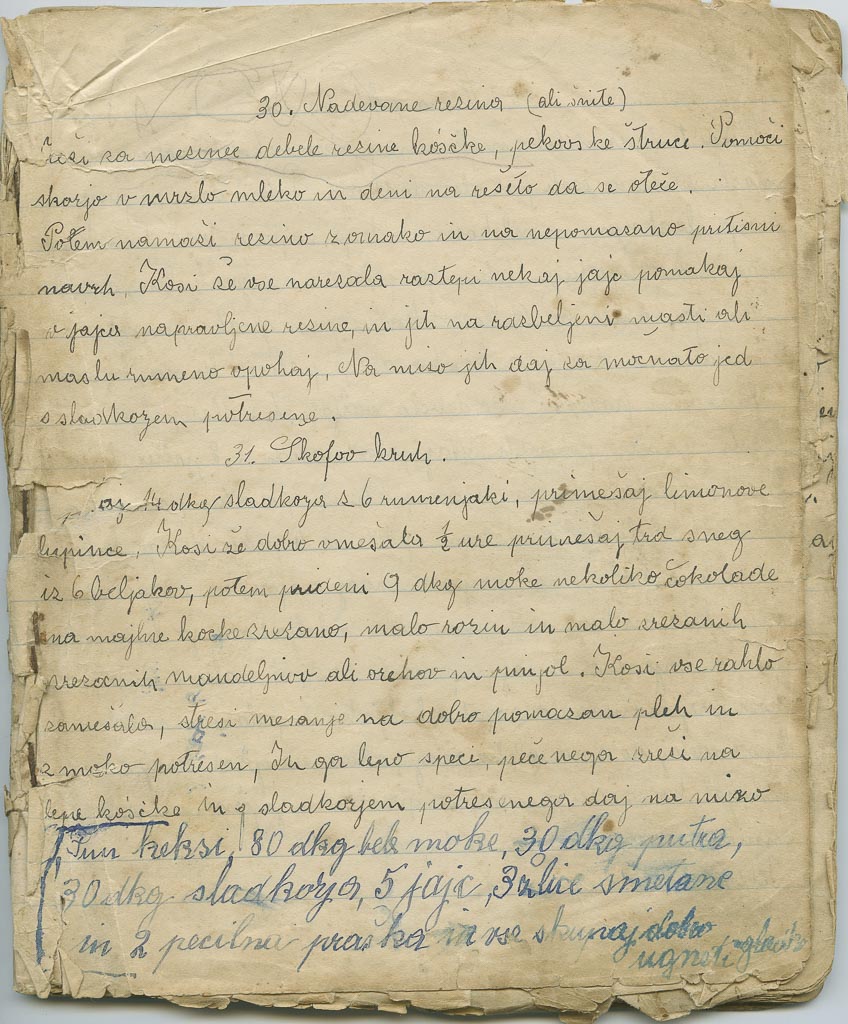 30. Nadevane rezina (ali šnite)
za mezinec debele rezine kóščke, pekovske štruce. Pomoči
skorjo v mrzlo mleko in deni na rešeto da se oteče.
Potem namaži rezino z omako in na nepomazano pritisni
navrh. Kosi še vse narezala raztepi nekaj jajc pomakaj
v jajca napravljene rezine, in jih na razbeljeni masti ali
maslu rumeno opohaj, Na mizo jih daj za močnato jed
s sladkozem potresene.
31. Škofov kruh.
14 dkg sladkorja s 6 rumenjaki, primešaj limonove
lupince, Kosi že dobro vmešala ½ ure primešaj trd sneg
iz 6 beljakov, potem prideni 9 dkg moke nekoliko čokolade
na majhne kocke zrezano, malo rozin in malo zrezanih
zrezanih mandeljnov ali orehov in pinjol. Kosi vse rahlo
zamešala, stresi mešanje na dobro pomazan pleh in
z moko potresen, In ga lepo speci, pečenega zreži na
lepe kóščke in s sladkorjem potresenega daj na mizo
Fini keksi, 80 dkg bele moke, 30 dkg putra,
30 dkg sladkorja, 5 jajc, 3 žlice smetane
in 2 pecilna praška in vse skupaj dobro
ugneti gladko